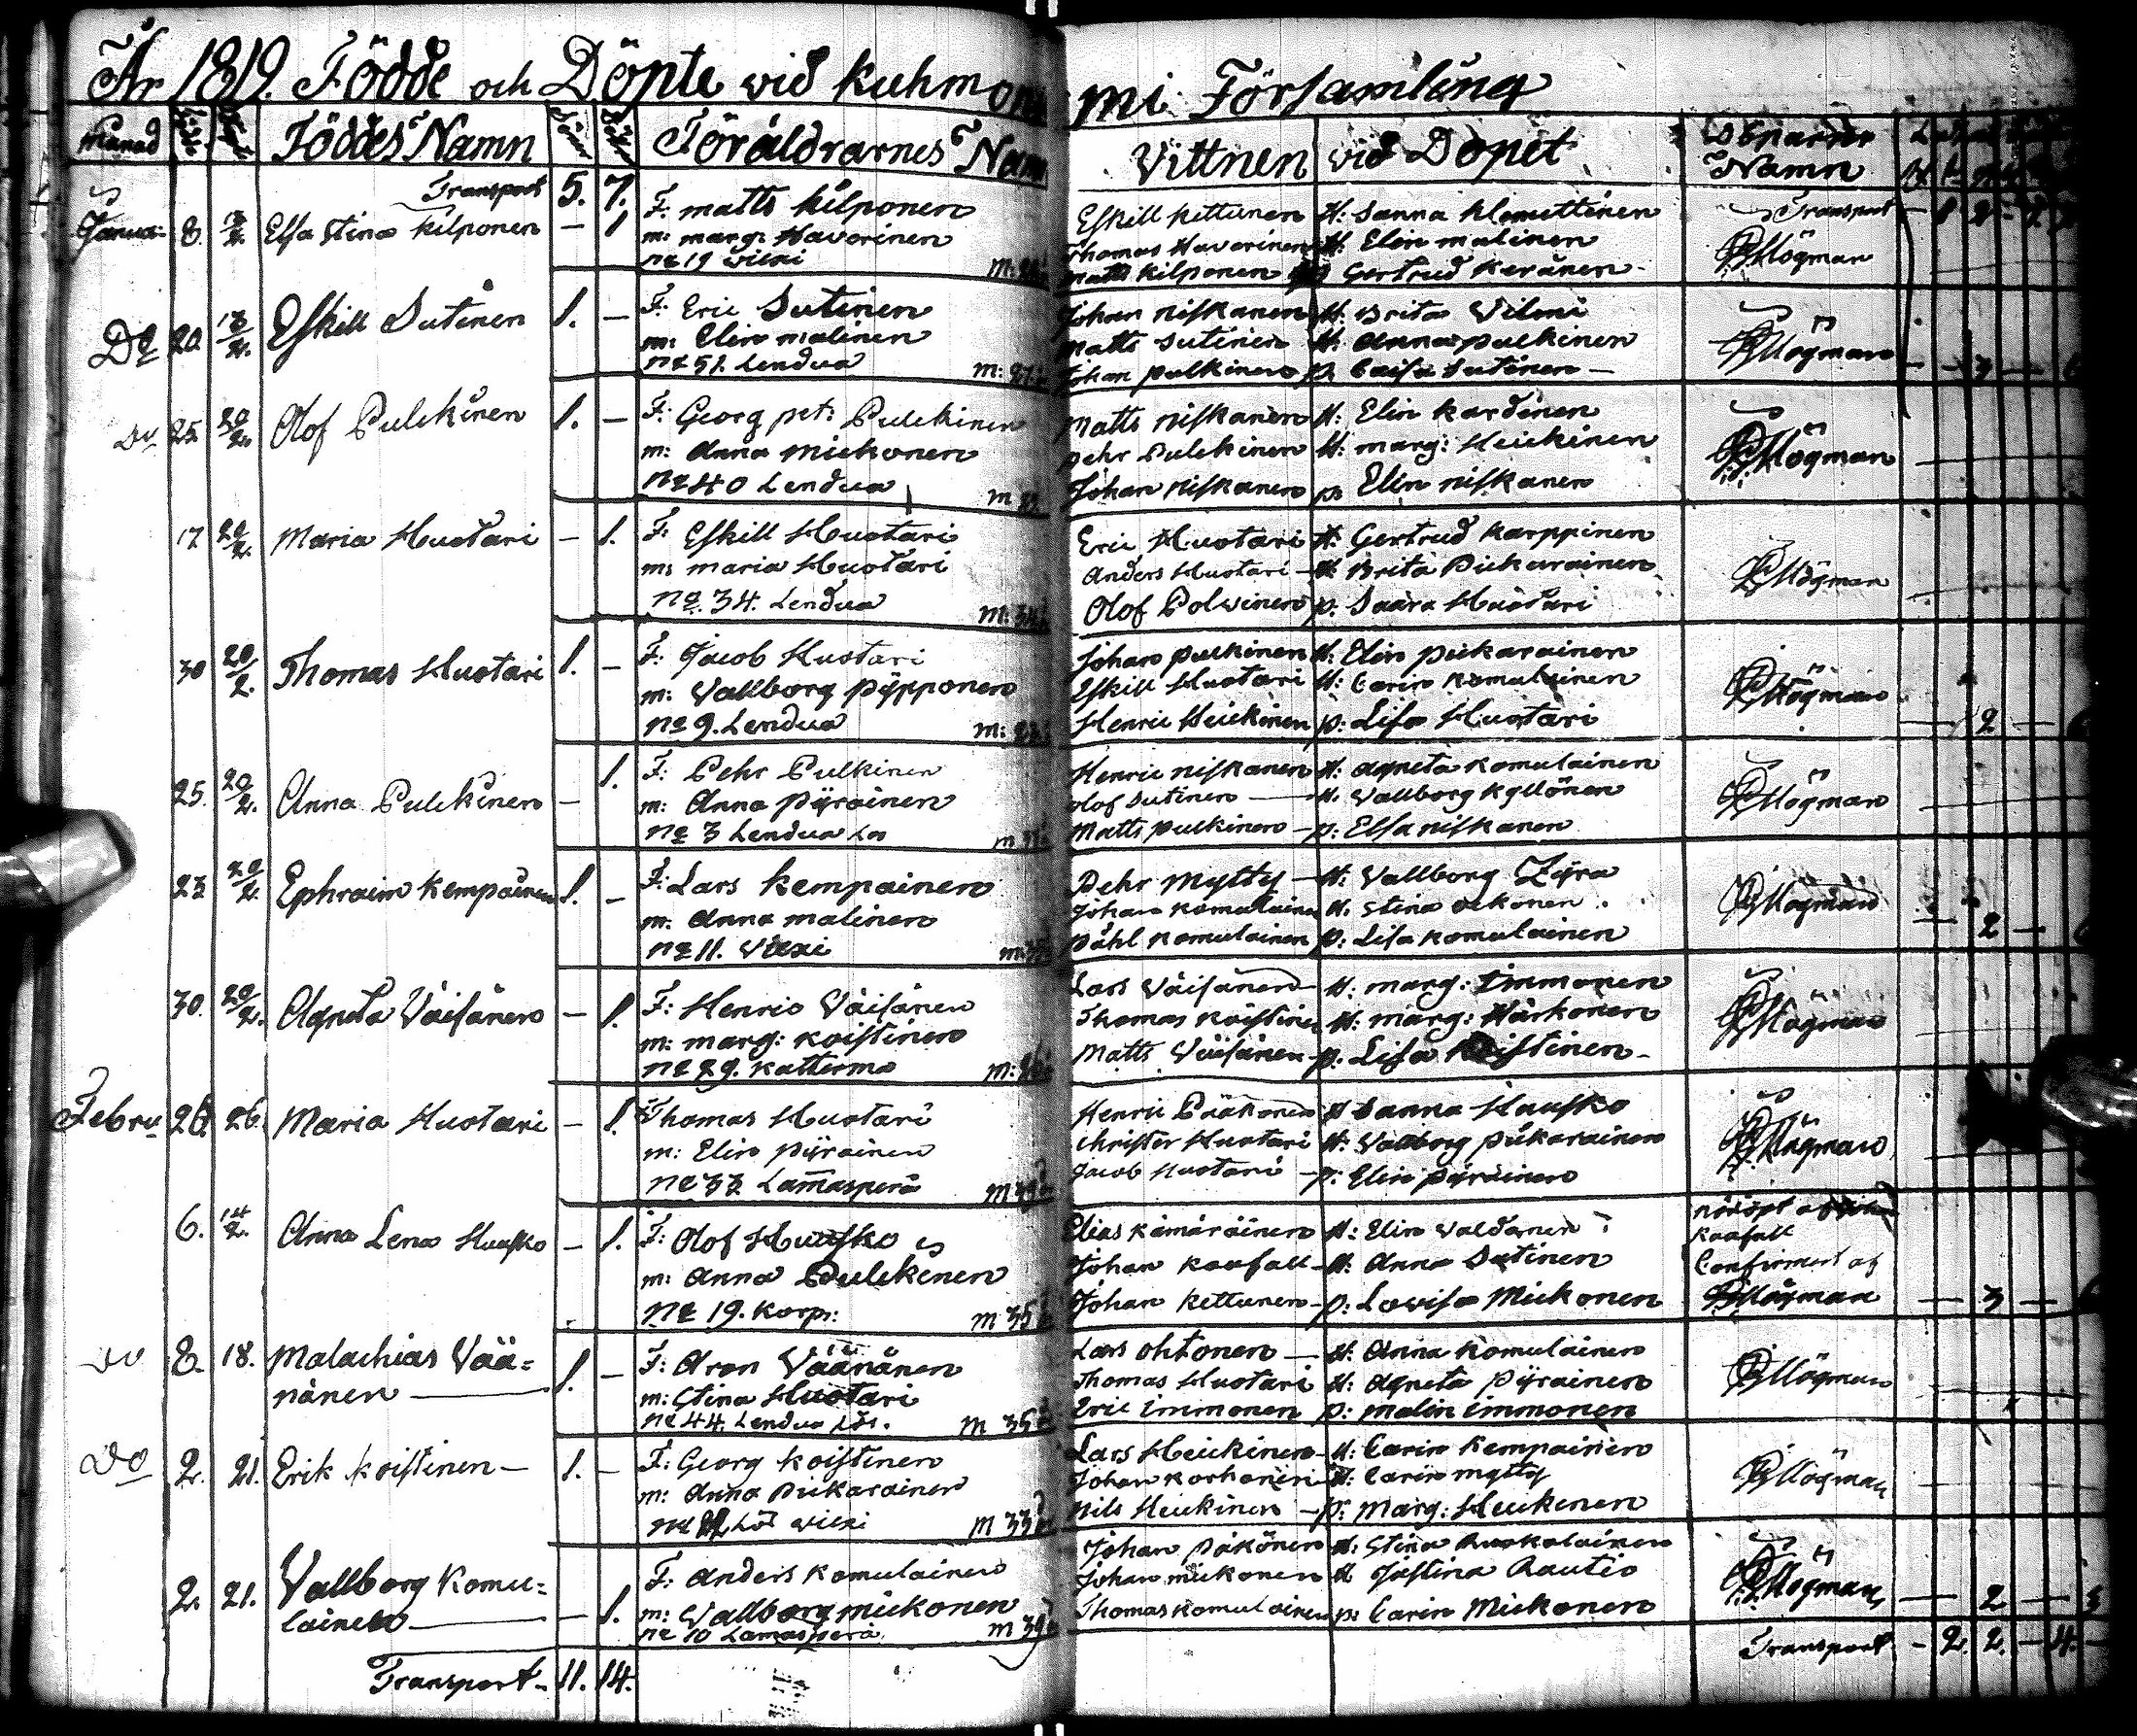 År 1819. Födde och Döpte vid Kuhmoni
mi Församling
Månad Födde Döpte Föddes Namn Söner Döttr Föräldrarnes Namn
Vittnen vid Dopet Döparens Namn
Transport 5. 7.
Transport
Januar 8. 13/2. Elsa Stina Kilponen — 1
F. Matts Kilponen
m: marg: Havorinen
No 19 Wiexi
Eskill Kettunen H: Sanna Klemettinen
Thomas Havorinen H: Elin malinen
matts Kilponen p. Gertrud Keränen
Högman
Do 20 13/2. Eskill Sutinen 1. —
F: Eric Sutinen
m: Elin malinen
No 51. Lendua
Johan niskanen H: Brita Vilmi
Matts Sutinen H: Anna pulkinen
Johan pulkinen p. Caisa Sutinen —
Högman
Do 25. 20/2. Olof Pulckinen 1. —
F: Georg pet: Pulckinen
m: Anna Mickonen
No 40 Lendua
Matts niskanen H: Elin Kardinen
pehr Pulckinen H: marg: Heickinen
Johan niskanen p. Elin niskanen
Högman
17 20/2. Maria Huotari — 1.
F: Eskill Huotari
m: maria Huotari
No. 34. Lendua
Eric Huotari H: Gertrud Karppinen
Anders Huotari — H: Brita Pickarainen
Olof Polvinen p. Saara Huotari
Högman
30 20/2. Thomas Huotari 1. —
F: Jacob Huotari
m: Vallborg pypponen
No 9. Lendua
Johan pulkinen H: Elin pickarainen
Eskill Huotari H: Carin Komulainen
Henric Heickinen p. Lisa Huotari
Högman
25. 20/2. Anna Pulckinen — 1.
F: Pehr Pulkinen
m: Anna pyrainen
No 3 Lendua Ls
Henric niskanen H: Agneta Komulainen
olof Sutinen — H. Vallborg Kyllönen
Matts pulkinen — p: Elsa niskanen
Högman
23 20/2. Ephraim Kempainen 1. —
F: Lars Kempainen
m. Anna malinen
No 11. Viexi
Pehr Mytty — H: Vallborg Zyra
Johan Komulainen H. Stina ockonen
påhl Komulainen p: Lisa Komulainen
Högman
30. 20/2. Agneta Väisänen — 1.
F: Henric Väisänen
m: marg: Koistinen
No 29. Kattermo
Lars Väisänen — H: marg: Immonen
Thomas Koistinen H: marg: Härkonen
Matts Väisänen — p. Lisa Koistinen —
Högman
Febru 26. 26. Maria Huotari — 1.
Thomas Huotari
m: Elin pyrainen
No 33 Lamasperä
Henric Pääkonen H Sanna Haasko
Christer Huotari H: Vallborg pickarainen
Jacob Huotari — p: Elin pyrainen
Högman
6. 14/2. Anna Lena Huusko — 1.
F: Olof Huusko
m: Anna Pulckinen
No 19. Korp: M 35
Elias Kämäräinen H: Elin Valdanen
Johan Kaufall — H: Anna Sutinen
Johan Kettunen — p: Lovisa Mickonen
nödöpt af
Kaafall
Confirmert af
Högman 3
Do 8. 18. Malachias Vää=
nänen — 1. —
F: Aron Väänänen
m: Stina Huotari
No 44. Lendua Lös. M 35
Lars Ohtonen — H: Anna Komulainen
Thomas Huotari H: Agneta pyrainen
Eric Immonen p: malin Immonen
Högman
Do 2. 21. Erik Koistinen — 1. —
F: Georg Koistinen
m: Anna pickarainen
No Lös Wiexi M 33
Lars Heickinen — H: Carin Kempainen
Johan Korhonen H: Carin mytty
Nils Heickinen — p: Marg: Heickenen
Högman
2. 21. Vallborg Komu=
lainen — — 1.
F: Anders Komulainen
m: Vallborg mickonen
No 10 Lamasperä M 39
Johan päkönen H: Stina Ruokolainen
Johan mickonen H Justina Rautio
Thomas Komulainen p: Carin Mickonen
Högman 2
Transport. 11. 14.
Transport. — 2. 2. — 4. —